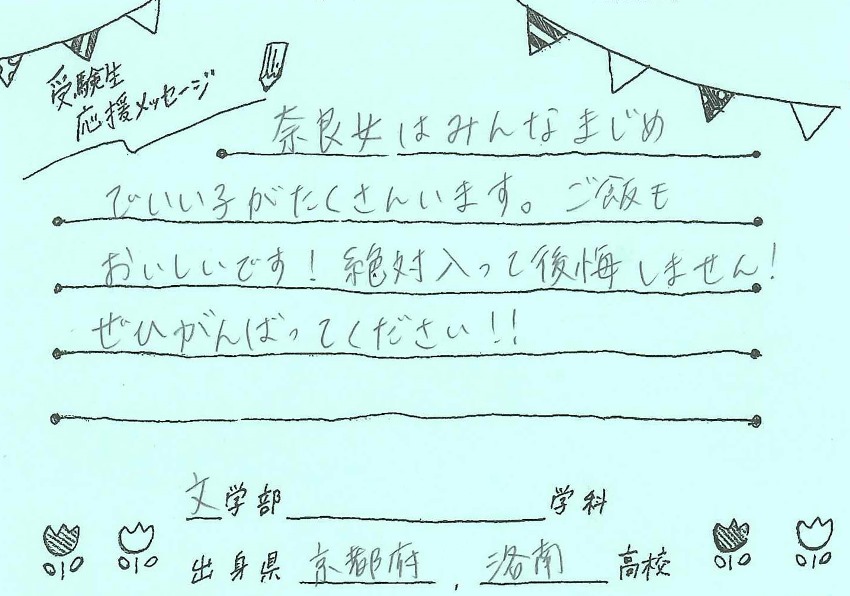 受験生
応援メッセージ
奈良女はみんなまじめ
でいい子がたくさんいます。ご飯も
おいしいです！絶対入って後悔しません！
ぜひがんばってください！！
文学部 学科
出身県 京都府 , 洛南 高校